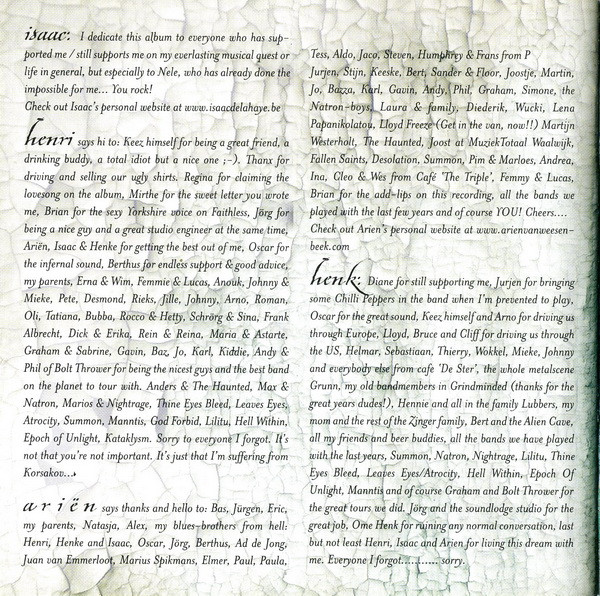 isaac: I dedicate this album to everyone who has sup-
ported me / still supports me on my everlasting musical quest or
life in general, but especially to Nele, who has already done the
impossible for me... You rock!
Check out Isaac's personal website at www.isaacdelahaye.be
henri says hi to: Keez himself for being a great friend, a
drinking buddy, a total idiot but a nice one ;-). Thanx for
driving and selling our ugly shirts. Regina for claiming the
lovesong on the album, Mirthe for the sweet letter you wrote
me, Brian for the sexy Yorkshire voice on Faithless, Jörg for
being a nice guy and a great studio engineer at the same time,
Ariën, Isaac & Henke for getting the best out of me, Oscar for
the infernal sound, Berthus for endless support & good advice,
my parents, Erna & Wim, Femmie & Lucas, Anouk, Johnny &
Mieke, Pete, Desmond, Rieks, Jille, Johnny, Arno, Roman,
Oli, Tatiana, Bubba, Rocco & Hetty, Schrörg & Sina, Frank
Albrecht, Dick & Erika, Rein & Reina, Maria & Astarte,
Graham & Sabrine, Gavin, Baz, Jo, Karl, Kiddie, Andy &
Phil of Bolt Thrower for being the nicest guys and the best band
on the planet to tour with. Anders & The Haunted, Max &
Natron, Marios & Nightrage, Thine Eyes Bleed, Leaves Eyes,
Atrocity, Summon, Manntis, God Forbid, Lilitu, Hell Within,
Epoch of Unlight, Kataklysm. Sorry to everyone I forgot. It's
not that you're not important. It's just that I'm suffering from
Korsakov...
ariën says thanks and hello to: Bas, Jürgen, Eric,
my parents, Natasja, Alex, my blues-brothers from hell:
Henri, Henke and Isaac, Oscar, Jörg, Berthus, Ad de Jong,
Juan van Emmerloot, Marius Spikmans, Elmer, Paul, Paula,
Tess, Aldo, Jaco, Steven, Humphrey & Frans from P
Jurjen, Stijn, Keeske, Bert, Sander & Floor, Joostje, Martin,
Jo, Bazza, Karl, Gavin, Andy, Phil, Graham, Simone, the
Natron-boys, Laura & family, Diederik, Wucki, Lena
Papanikolatou, Lloyd Freeze (Get in the van, now!!) Martijn
Westerholt, The Haunted, Joost at MuziekTotaal Waalwijk,
Fallen Saints, Desolation, Summon, Pim & Marloes, Andrea,
Ina, Cleo & Wes from Café 'The Triple', Femmy & Lucas,
Brian for the add-lips on this recording, all the bands we
played with the last few years and of course YOU! Cheers....
Check out Arien's personal website at www.arienvanweesen-
beek.com
henk: Diane for still supporting me, Jurjen for bringing
some Chilli Peppers in the band when I'm prevented to play,
Oscar for the great sound, Keez himself and Arno for driving us
through Europe, Lloyd, Bruce and Cliff for driving us through
the US, Helmar, Sebastiaan, Thierry, Wokkel, Mieke, Johnny
and everybody else from cafe 'De Ster', the whole metalscene
Grunn, my old bandmembers in Grindminded (thanks for the
great years dudes!), Hennie and all in the family Lubbers, my
mom and the rest of the Zinger family, Bert and the Alien Cave,
all my friends and beer buddies, all the bands we have played
with the last years, Summon, Natron, Nightrage, Lilitu, Thine
Eyes Bleed, Leaves Eyes/Atrocity, Hell Within, Epoch Of
Unlight, Manntis and of course Graham and Bolt Thrower for
the great tours we did. Jörg and the soundlodge studio for the
great job, Ome Henk for ruining any normal conversation, last
but not least Henri, Isaac and Arien for living this dream with
me. Everyone I forgot........... sorry.